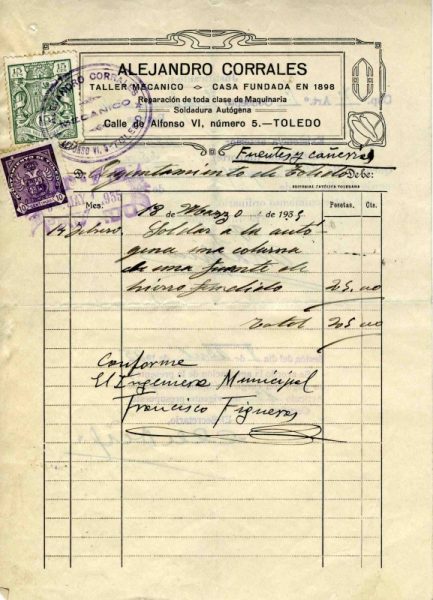 ALEJANDRO CORRALES
TALLER MECANICO - CASA FUNDADA EN 1898
Reparación de toda clase de Maquinaria
Soldadura Autógena
Calle de Alfonso VI, número 5.—TOLEDO
Fuentes y cañerías
D. Ayuntamiento de Toledo Debe:
EDITORIAL CATÓLICA TOLEDANA
Mes: 18 de Marzo de 1935 Pesetas. Cts.
14 Febrero. Soldar a la autó
gena una columna
de una fuente de
hierro fundido 25,00
Total 25,00
Conforme
El Ingeniero Municipal
Francisco Figueras